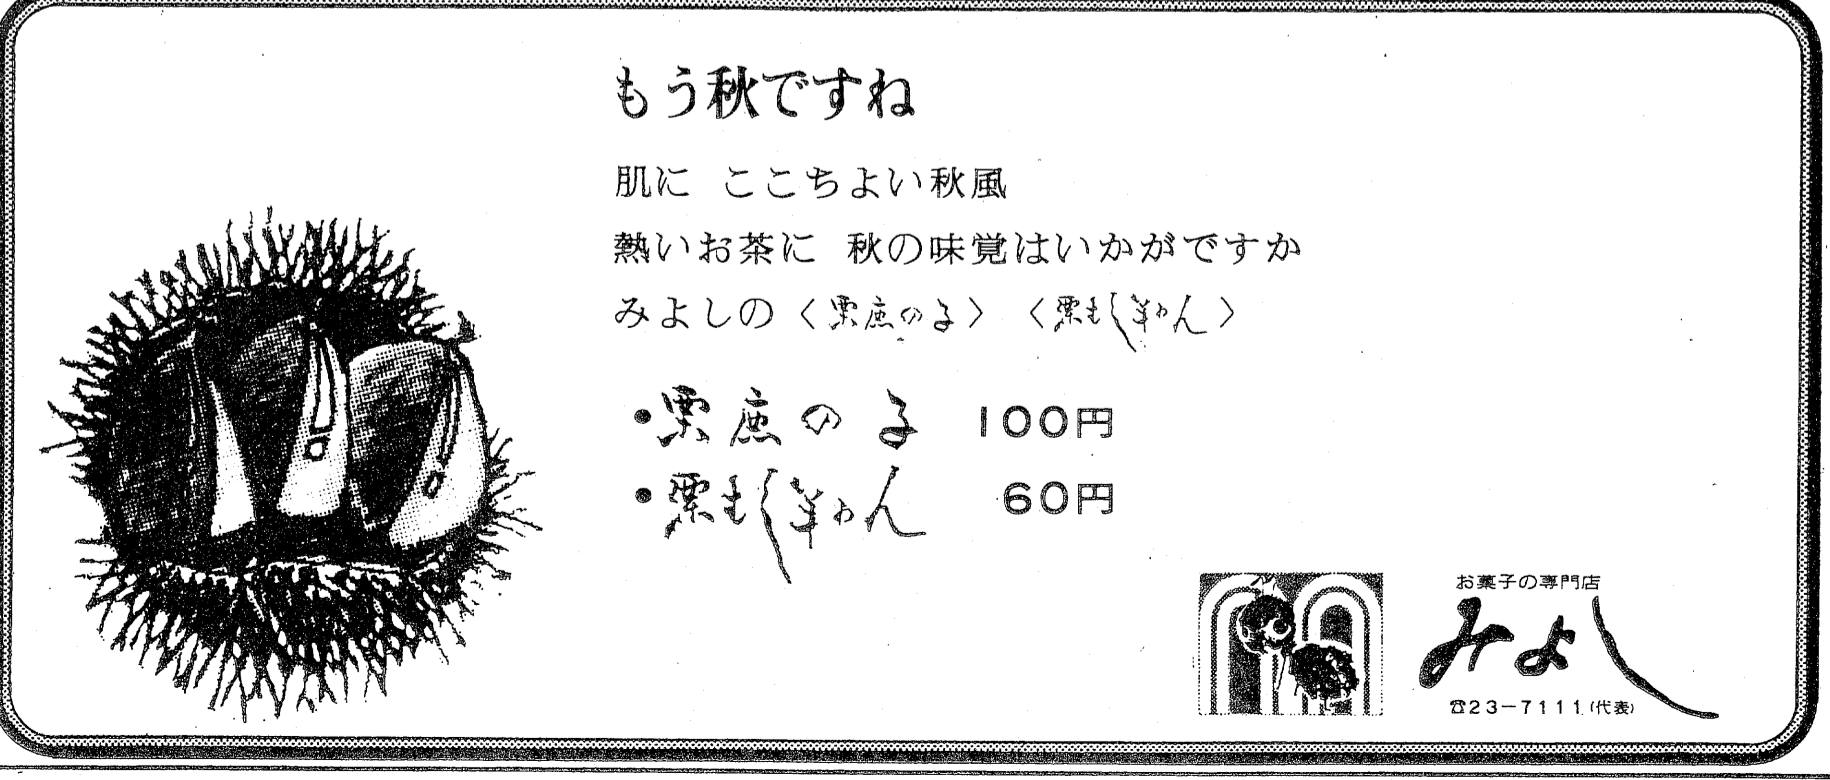 もう秋ですね
肌に ここちよい秋風
熱いお茶に 秋の味覚はいかがですか
みよしの〈栗鹿の子〉〈栗むし羊かん〉
・栗鹿の子 100円
・栗むし羊かん 60円
お菓子の専門店
みよし
☎23-7111(代表)